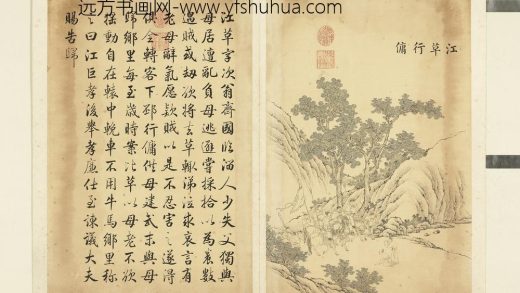 远方书画网--www.yfshuhua.com
江革行傭
江革字次翁齊國臨淄人少失父獨與
母居遭亂負母逃難嘗採拾以為養數
遇賊或劫欲將去革輒涕泣求哀言有
老母辭氣愿款賊以是不忍害之遂得
俱全轉客下邳行傭供母建武末與母
歸鄉里每至歲時案比革以母老不欲
搖動自在轅中輓車不用牛馬鄉里稱
之曰江巨孝後舉孝廉仕至諫議大夫
賜告歸